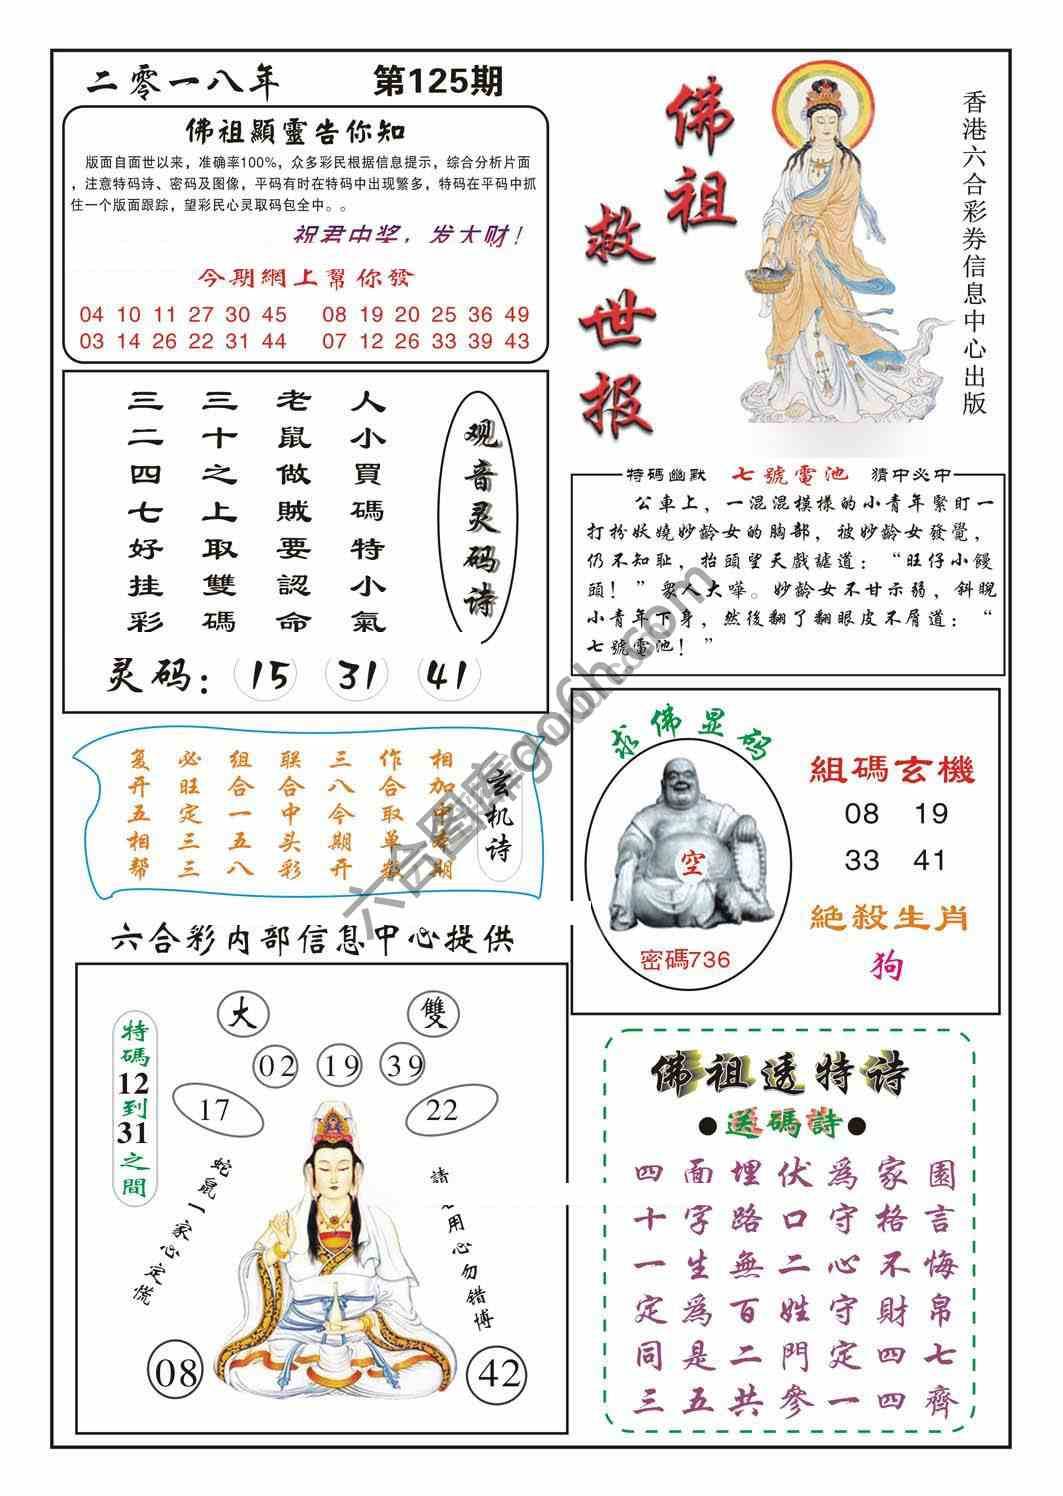 二零一八年 第125期
佛祖顯靈告你知
版面自面世以来，准确率100%，众多彩民根据信息提示，综合分析片面
，注意特码诗、密码及图像，平码有时在特码中出现繁多，特码在平码中抓
住一个版面跟踪，望彩民心灵取码包全中。。
祝君中奖，发大财！
今期網上幫你發
04 10 11 27 30 45 08 19 20 25 36 49
03 14 26 22 31 44 07 12 26 33 39 43
佛祖救世报
香港六合彩券信息中心出版
观音灵码诗
人小買碼特小氣
老鼠做賊要認命
三十之上取雙碼
三二四七好挂彩
灵码：15 31 41
特码幽默 七號電池 猜中必中
公車上，一混混模樣的小青年緊盯一
打扮妖嬈妙龄女的胸部，被妙龄女發覺，
仍不知耻，抬頭望天戲謔道：“旺仔小饅
頭！”衆人大嘩。妙龄女不甘示弱，斜睨
小青年下身，然後翻了翻眼皮不屑道：“
七號電池！”
玄机诗
相加中 期
作合取单数
三八今期开
联合中头彩
组合一五八
必旺定三三
复开五相帮
求佛显码
空
密碼736
組碼玄機
08 19
33 41
絕殺生肖
狗
六合彩内部信息中心提供
大 雙
02 19 39
17 22
特碼12到31之間
蛇鼠一家心定慌
請 用心勿错博
08 42
佛祖透特诗
●送碼詩●
四面埋伏爲家園
十字路口守格言
一生無二心不悔
定爲百姓守財帛
同是二門定四七
三五共參一四齊
六合图库go6h.com